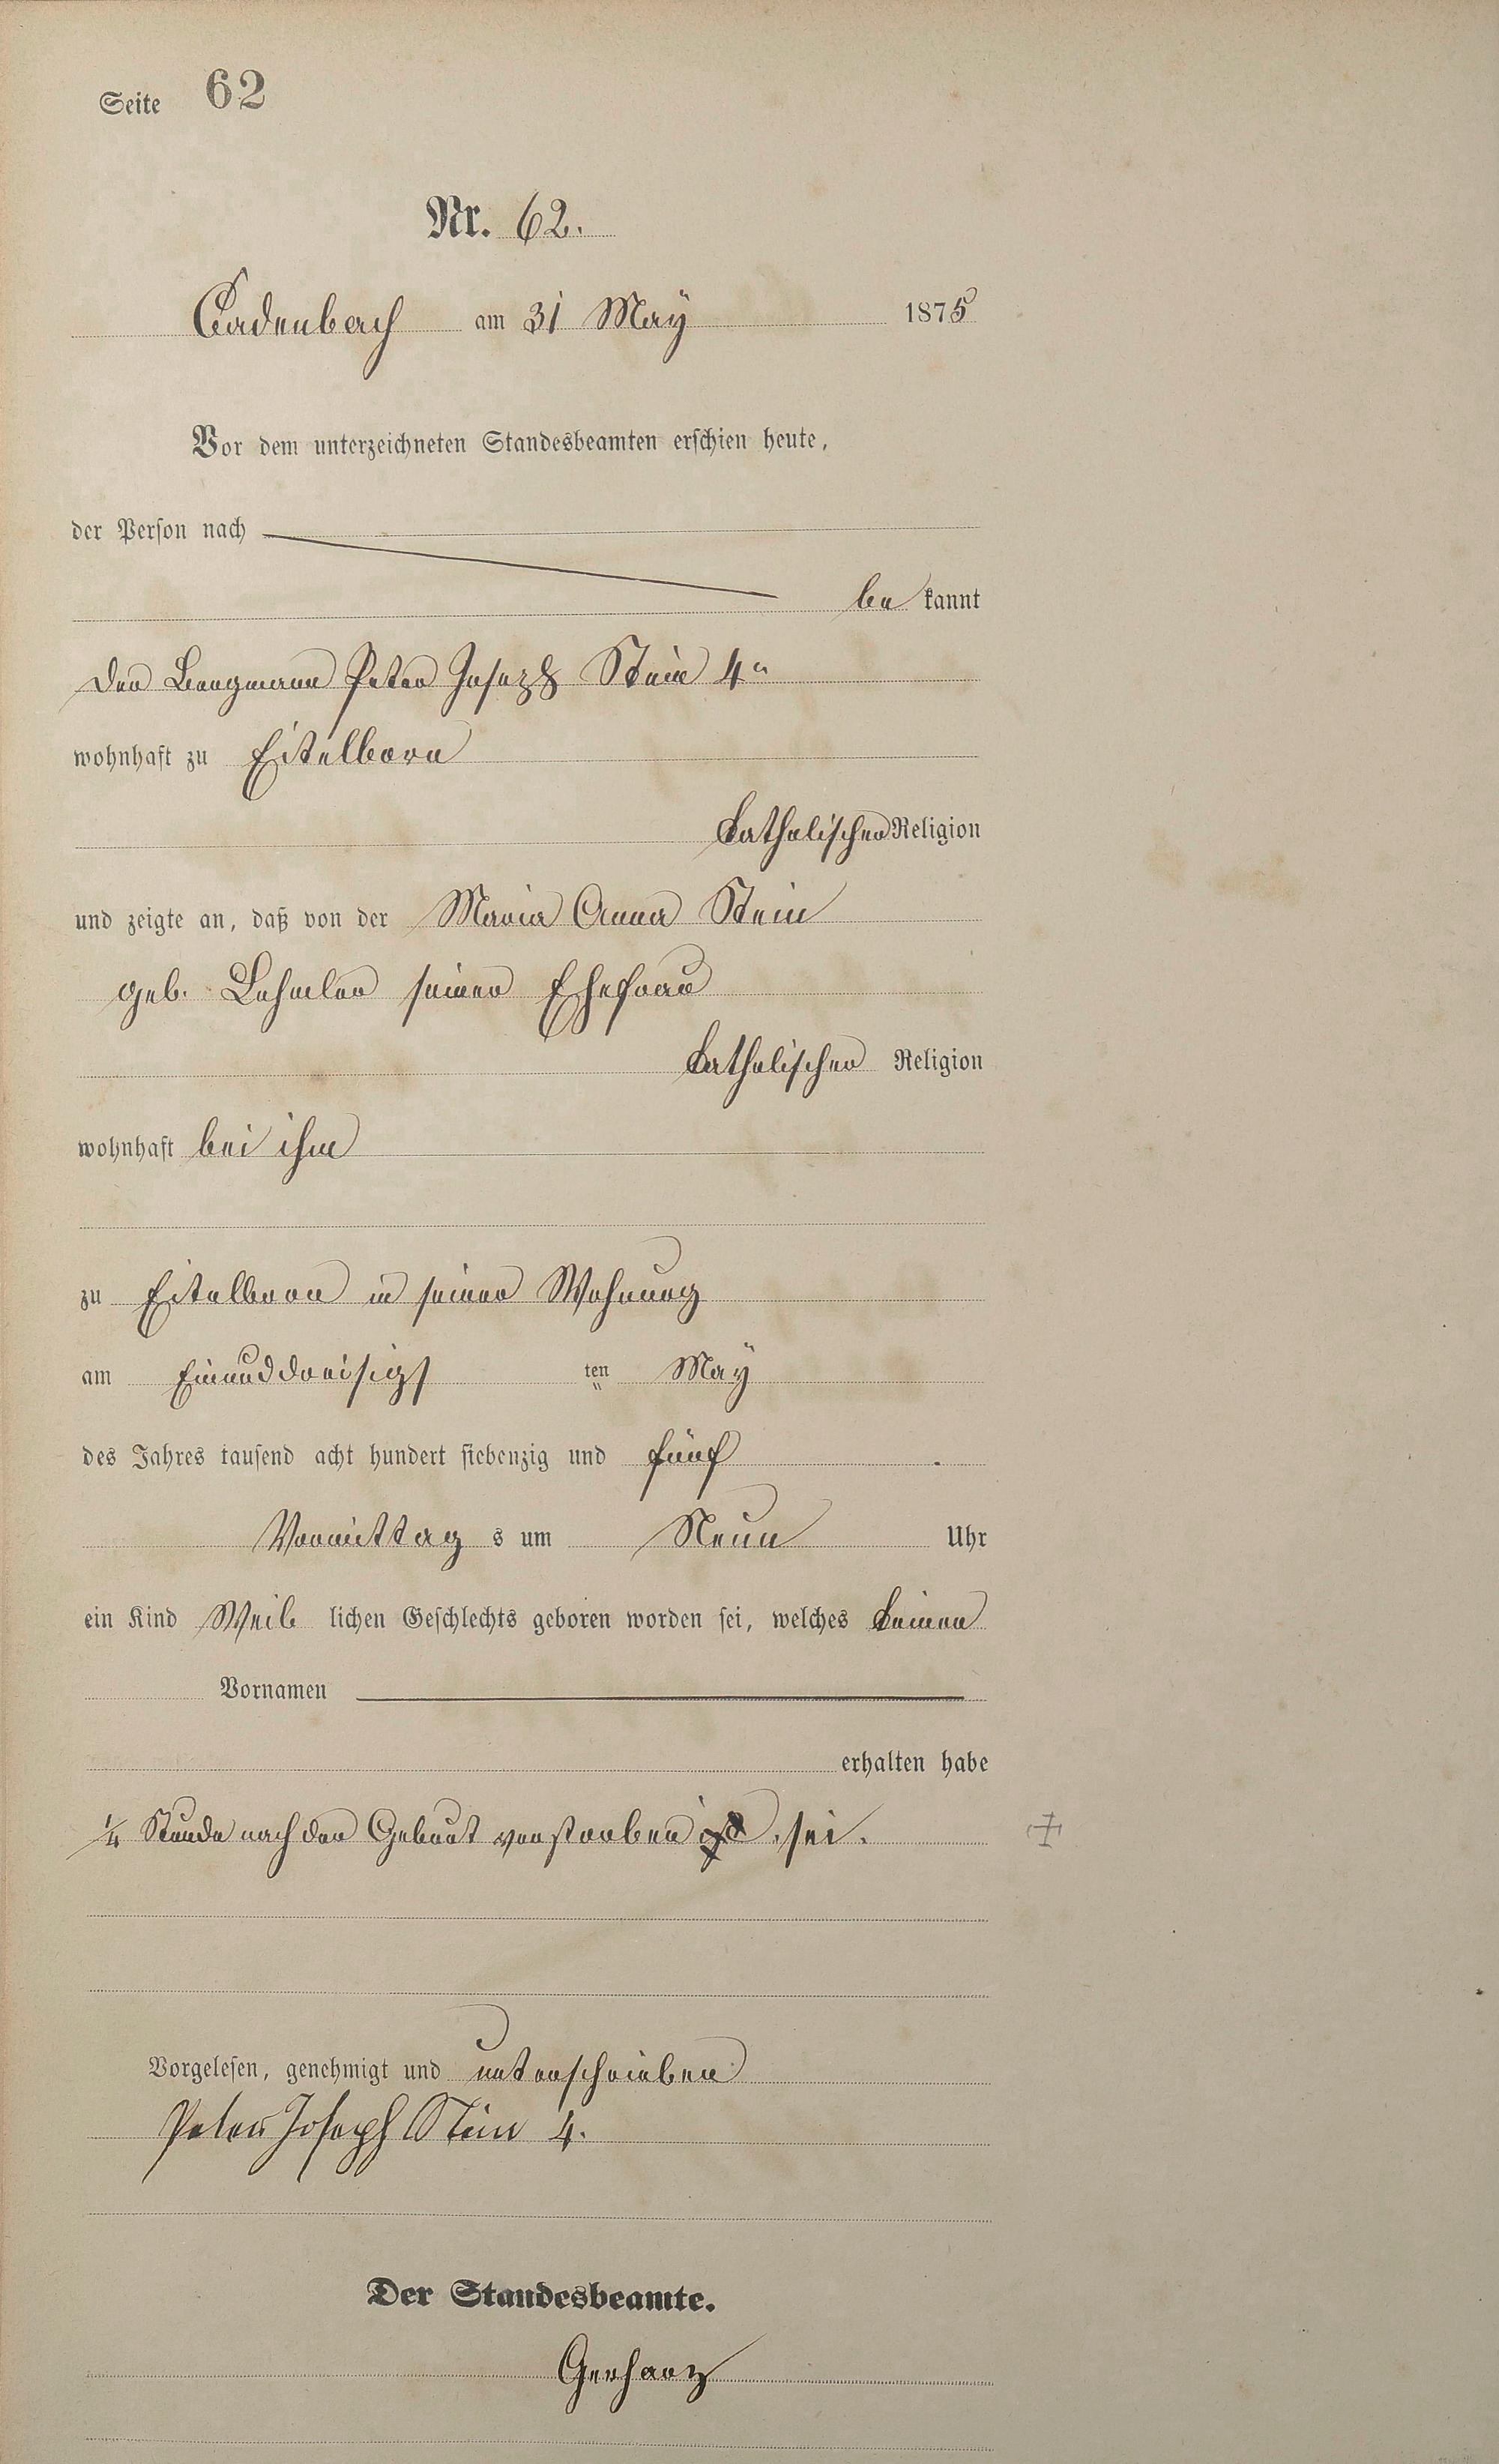 Seite 62
Nr. 62.
Cadenbach am 31 May 1875
Vor dem unterzeichneten Standesbeamten erschien heute,
der Person nach
be kannt
der Bergmann Peter Joseph Stein 4r
wohnhaft zu Eitelborn
katholischer Religion
und zeigte an, daß von der Maria Anna Stein
geb. Lehmler seiner Ehefrau
katholischer Religion
wohnhaft bei ihm
zu Eitelborn in seiner Wohnung
am Einunddreisigs ten May
des Jahres tausend acht hundert siebenzig und fünf
Vormittag s um Neun Uhr
ein Kind Weib lichen Geschlechts geboren worden sei, welches keinen
Vornamen
erhalten habe
1/4 Stunde nach der Geburt verstorben sei.
Vorgelesen, genehmigt und unterschrieben
Peter Joseph Stein 4.
Der Standesbeamte.
Gerharz